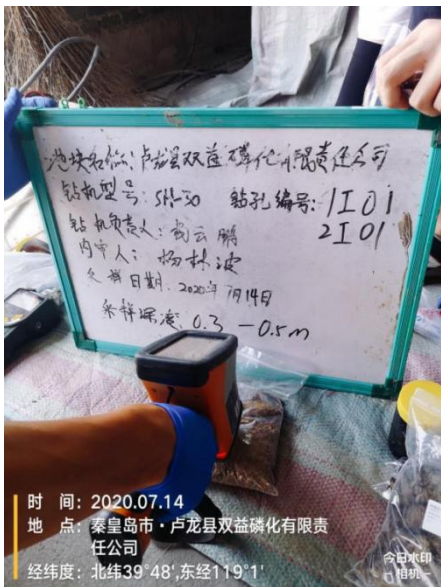 地块名称:卢龙县双益磷化有限责任公司
钻机型号:SH-30 钻孔编号:1I01
2I01
钻机负责人:
云鹏
内审人:杨林波
采样日期:2020年7月14日
采样深度:0.3-0.5m
时 间:2020.07.14
地 点:秦皇岛市·卢龙县双益磷化有限责
任公司
经纬度:北纬39°48',东经119°1'
今日水印
-相机-